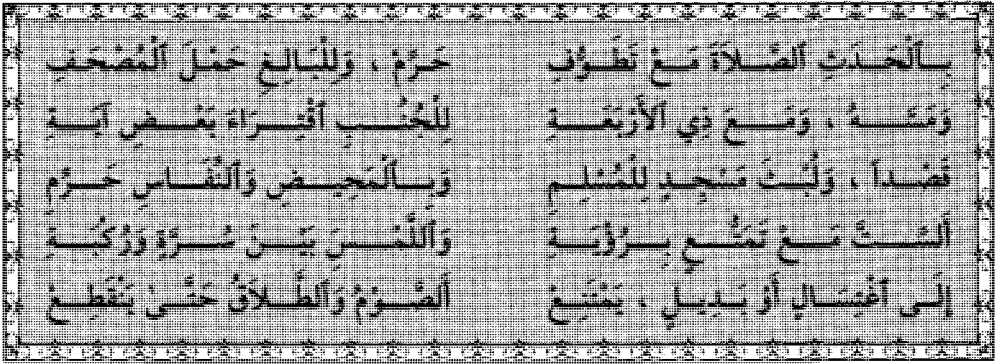 بِٱلْحَدَثِ ٱلصَّلاَةَ مَعْ تَطَوُّفِ حَرِّمْ ، وَلِلْبَالِغِ حَمْلَ ٱلْمُصْحَفِ
وَمَسَّـهُ ، وَمَـعَ ذِي ٱلأَرْبَعَـةِ لِلْجُنُـبِ ٱقْتِـرَاءَ بَعْـضِ آيَـةِ
قَصْـداً ، وَلُبْـثَ مَسْجِـدٍ لِلْمُسْلِـمِ وَبِـٱلْمَحِيـضِ وَٱلنِّفَـاسِ حَـرِّمِ
ٱلسِّـتَّ مَـعْ تَمَتُّـعٍ بِـرُؤْيَـةِ وَٱللَّمْـسَ بَيْـنَ سُـرَّةٍ وَرُكْبَـةِ
إِلَـى ٱغْتِسَـالٍ أَوْ بَـدِيـلٍ ، يَمْتَنِعْ ٱلصَّـوْمُ وَٱلطَّـلاَقُ حَتَّـىٰ يَنْقَطِـعْ